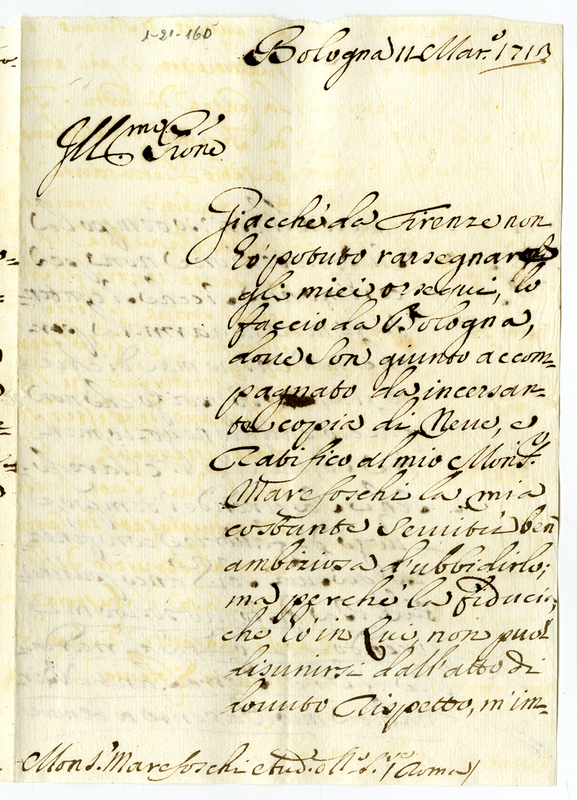 1-21-160
Bologna 11 Mar.º 1713
Ill.mo Sig.re
Prone
Giacché da Firenze non
hò potuto rassegnarle
gli miei ossequi, lo
faccio da Bologna,
doue son giunto accom=
pagnato da incessan=
te copia di Neue, e
Ratifico al mio Mons.r
Marefoschi la mia
costante Seruitù ben
ambiziosa d'ubbidirlo;
ma perché la fiducia,
che hò in Lue, non puol
disunirsi dall'atto di
douuto Rispetto, m'im=
Mons.r Marefoschi (Roma)